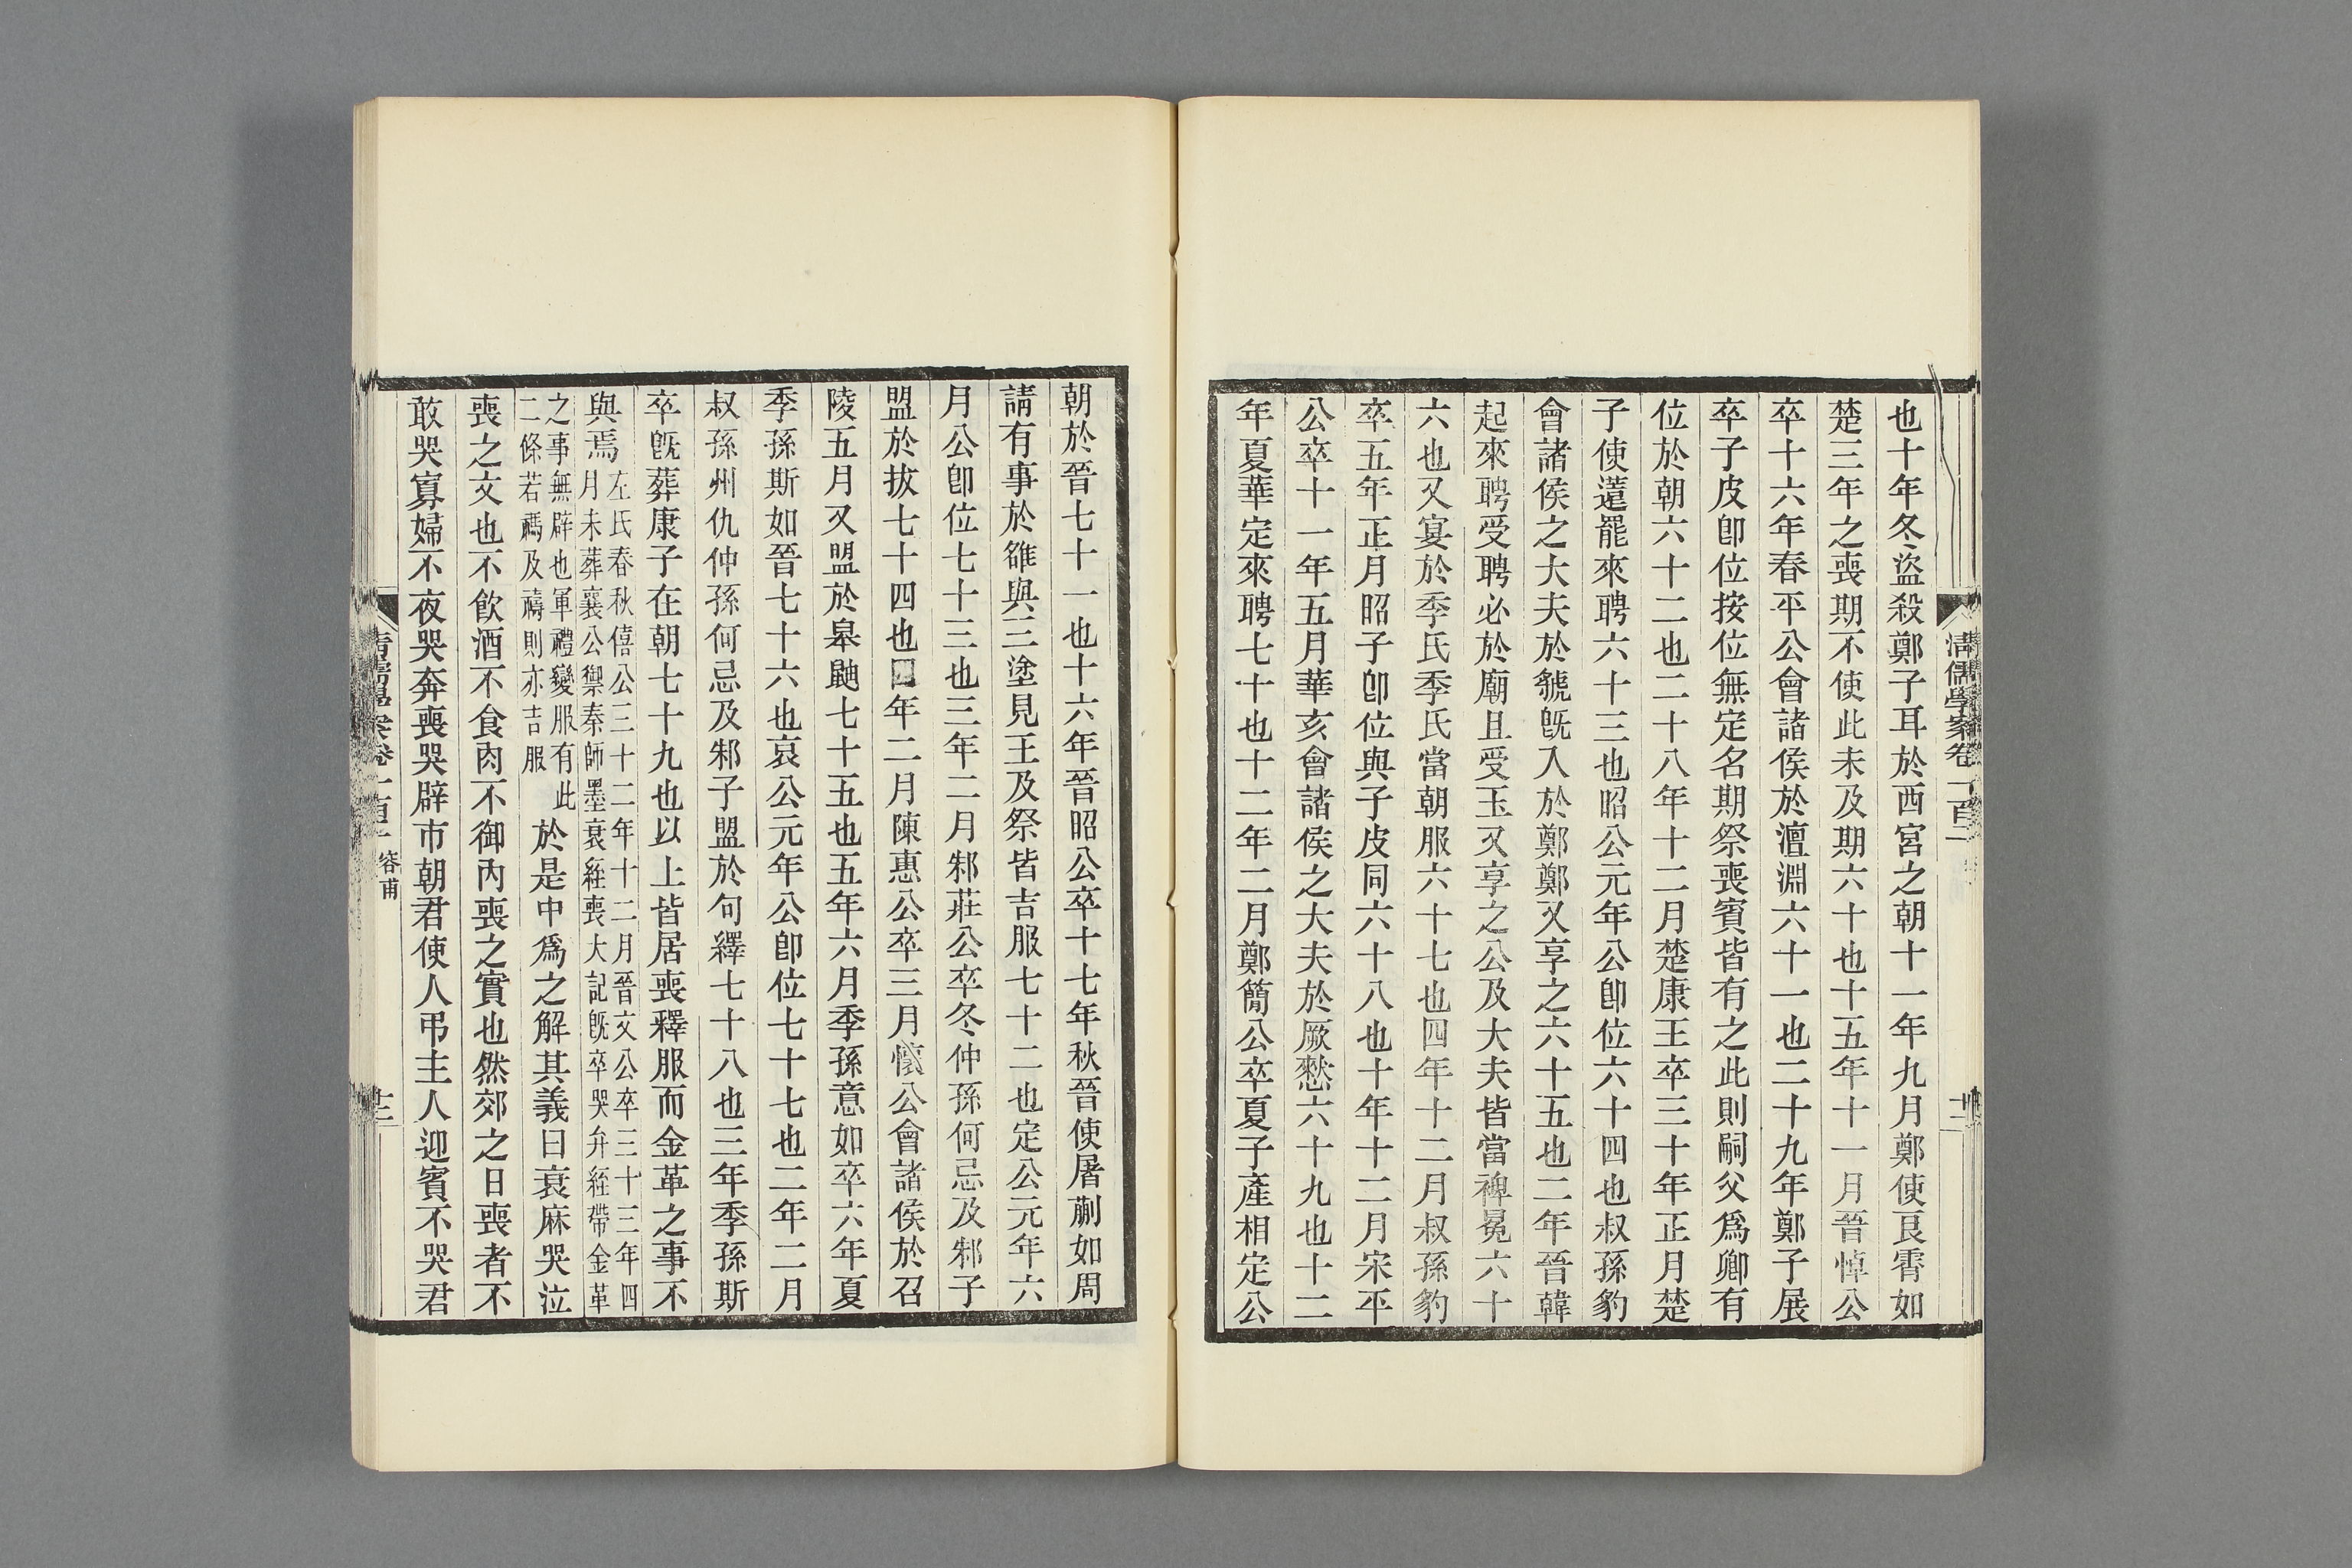 清儒學案卷一百二
也十年冬盜殺鄭子耳於西宮之朝十一年九月鄭使良霄如
楚三年之喪期不使此未及期六十也十五年十一月晉悼公
卒十六年春平公會諸侯於澶淵六十一也二十九年鄭子展
卒子皮卽位按位無定名期祭喪賓皆有之此則嗣父爲卿有
位於朝六十二也二十八年十二月楚康王卒三十年正月楚
子使薳罷來聘六十三也昭公元年公卽位六十四也叔孫豹
會諸侯之大夫於虢旣入於鄭鄭又享之六十五也二年晉韓
起來聘受聘必於廟且受玉又享之公及大夫皆當裨冕六十
六也又宴於季氏季氏當朝服六十七也四年十二月叔孫豹
卒五年正月昭子卽位與子皮同六十八也十年十二月宋平
公卒十一年五月華亥會諸侯之大夫於厥憖六十九也十二
年夏華定來聘七十也十二年二月鄭簡公卒夏子產相定公
朝於晉七十一也十六年晉昭公卒十七年秋晉使屠蒯如周
請有事於雒與三塗見王及祭皆吉服七十二也定公元年六
月公卽位七十三也三年二月邾莊公卒冬仲孫何忌及邾子
盟於拔七十四也四年二月陳惠公卒三月懷公會諸侯於召
陵五月又盟於皋鼬七十五也五年六月季孫意如卒六年夏
季孫斯如晉七十六也哀公元年公卽位七十七也二年二月
叔孫州仇仲孫何忌及邾子盟於句繹七十八也三年季孫斯
卒旣葬康子在朝七十九也以上皆居喪釋服而金革之事不
與焉左氏春秋僖公三十二年十二月晉文公卒三十三年四
月未葬襄公禦秦師墨衰絰喪大記旣卒哭弁絰帶金革
之事無辟也軍禮變服有此
二條若禡及禱則亦吉服於是中爲之解其義曰衰麻哭泣
喪之文也不飮酒不食肉不御內喪之實也然郊之日喪者不
敢哭寡婦不夜哭奔喪哭辟市朝君使人弔主人迎賓不哭君
清儒學案卷一百二 容甫 十二